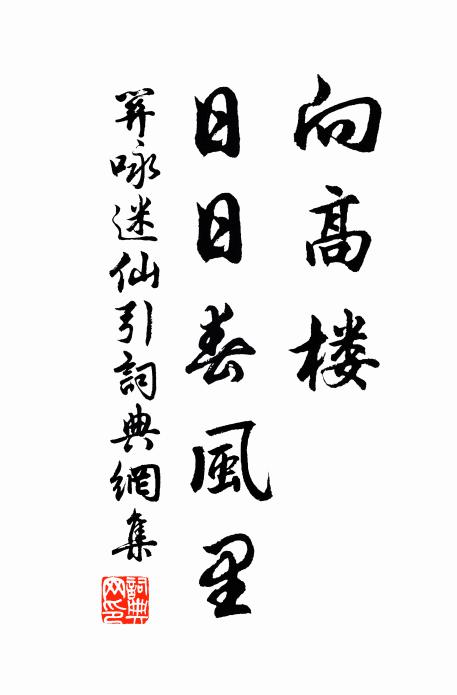 向高楼
日日春風里
关咏迷仙引詞典網集
詞典网印